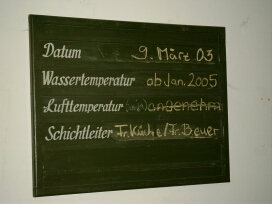 Datum 9. März 03
Wassertemperatur ob Jan. 2005
Lufttemperatur angenehm
Schichtleiter Fr. Küche/Fr. Beuer